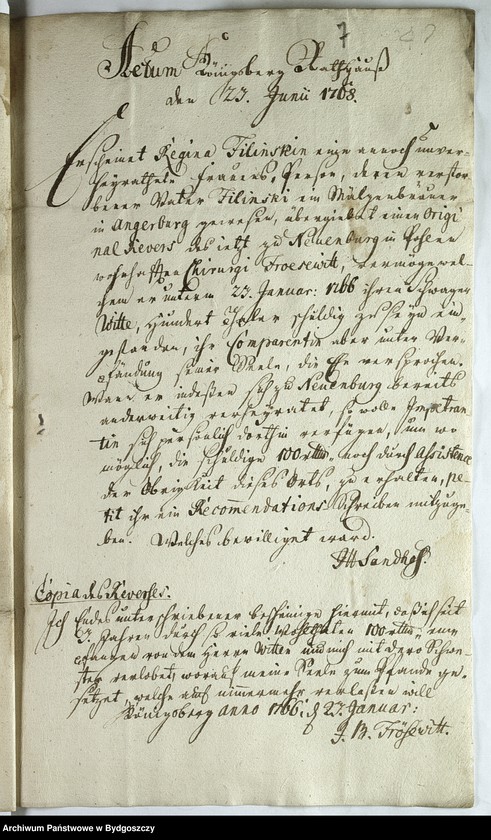 7
Actum Königsberg Rathhauß
den 23. Junii 1768.
Erscheinet Regina Filinskin eine annoch unver-
heyrathete Frauens-Person, deren verstor-
bener Vater Filinski ein Mältzenbräuer
in Angerburg gewesen, übergiebet einen Origi
nal Revers des jetzt zu Neuenburg in Pohlen
wohnhafften Chirurgi Froesewitt, vermöge wel-
chen er unterm 23. Januar: 1766 ihren Schwager
Witte, Hundert Thaler schuldig zu seyn ein-
gestanden, ihr Comparentin aber unter Ver-
pfändung seiner Seele, die Ehe versprochen.
Wann er indeßen sich zu Neuenburg bereits
anderweitig verheyratet, so wolle Impetran
tin sich persönlich dorthin verfügen, um wo
möglich, die schuldige 100 rthlr. noch durch Assistence
der Obrigkeit dieses Orts, zu erhalten, pe-
tit ihr ein Recommendations Schreiben mitzuge-
ben. Welches bewilliget ward.
Sandhof.
Copia des Reverses.
Ich Endes unterschriebener bescheinige hiermit, daß ich seit
3 Jahren durch so viele Wohlthaten 100 rthlr. em-
pfangen von dem Herrn Witte und mich mit dero Schwe-
ster verlobet, worauf meine Seele zum Pfande ge-
setzet, welche auch nimmermehr verlaßen will
Königsberg anno 1766. d 23. Januar:
J. B. Frösewitt.
Archiwum Państwowe w Bydgoszczy